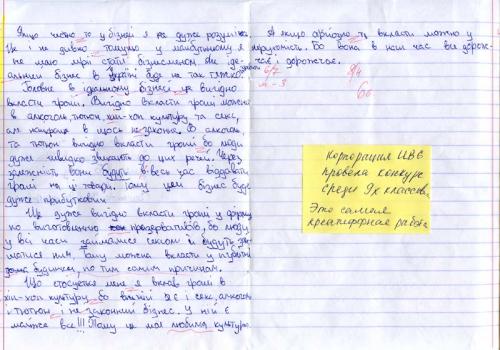 Якщо чесно то у бізнесі я не дуже розуміюся.
Це і не дивно тому у майбутньому я
не маю мрії стати бізнесменом. Як
альний бізнес в Україні буде не так тяжко.
Головне в ідеальному бізнесі це вигідно
вкласти гроші. Вигідно вкласти гроші можна
в алкоголь, тютюн, хіп-хоп культуру та секс,
але наперша в щось незаконне. В алкоголь
та тютюн вигідно вкласти гроші бо люди
дуже швидко звикають до цих речей. Через
залежність вони будуть ввесь час віддавати
гроші на ці товари. Тому цей бізнес буде
дуже прибутковим.
Ще дуже вигідно вкласти гроші у фірму
по виготовленню презервативів, бо люди
у всі часи займалися сексом и будуть зай-
матися ним. Тому можна вкласти у публічні
дома будинки, по тим самим причинам.
Що стосується мене я вклав гроші в
хіп-хоп культуру бо в ній є і секс, алкоголь
і тютюн, і не законний бізнес. У ній є
майже все!!! Тому це моя любима культура.
А якщо серйозно то вкласти можна у
нерухомість. Бо вона в наш час все дорож-
чає і дорожчає.
6б.
Корпорация ИВС
провела конкурс
среди 9х классов.
Это самая
креативная работа